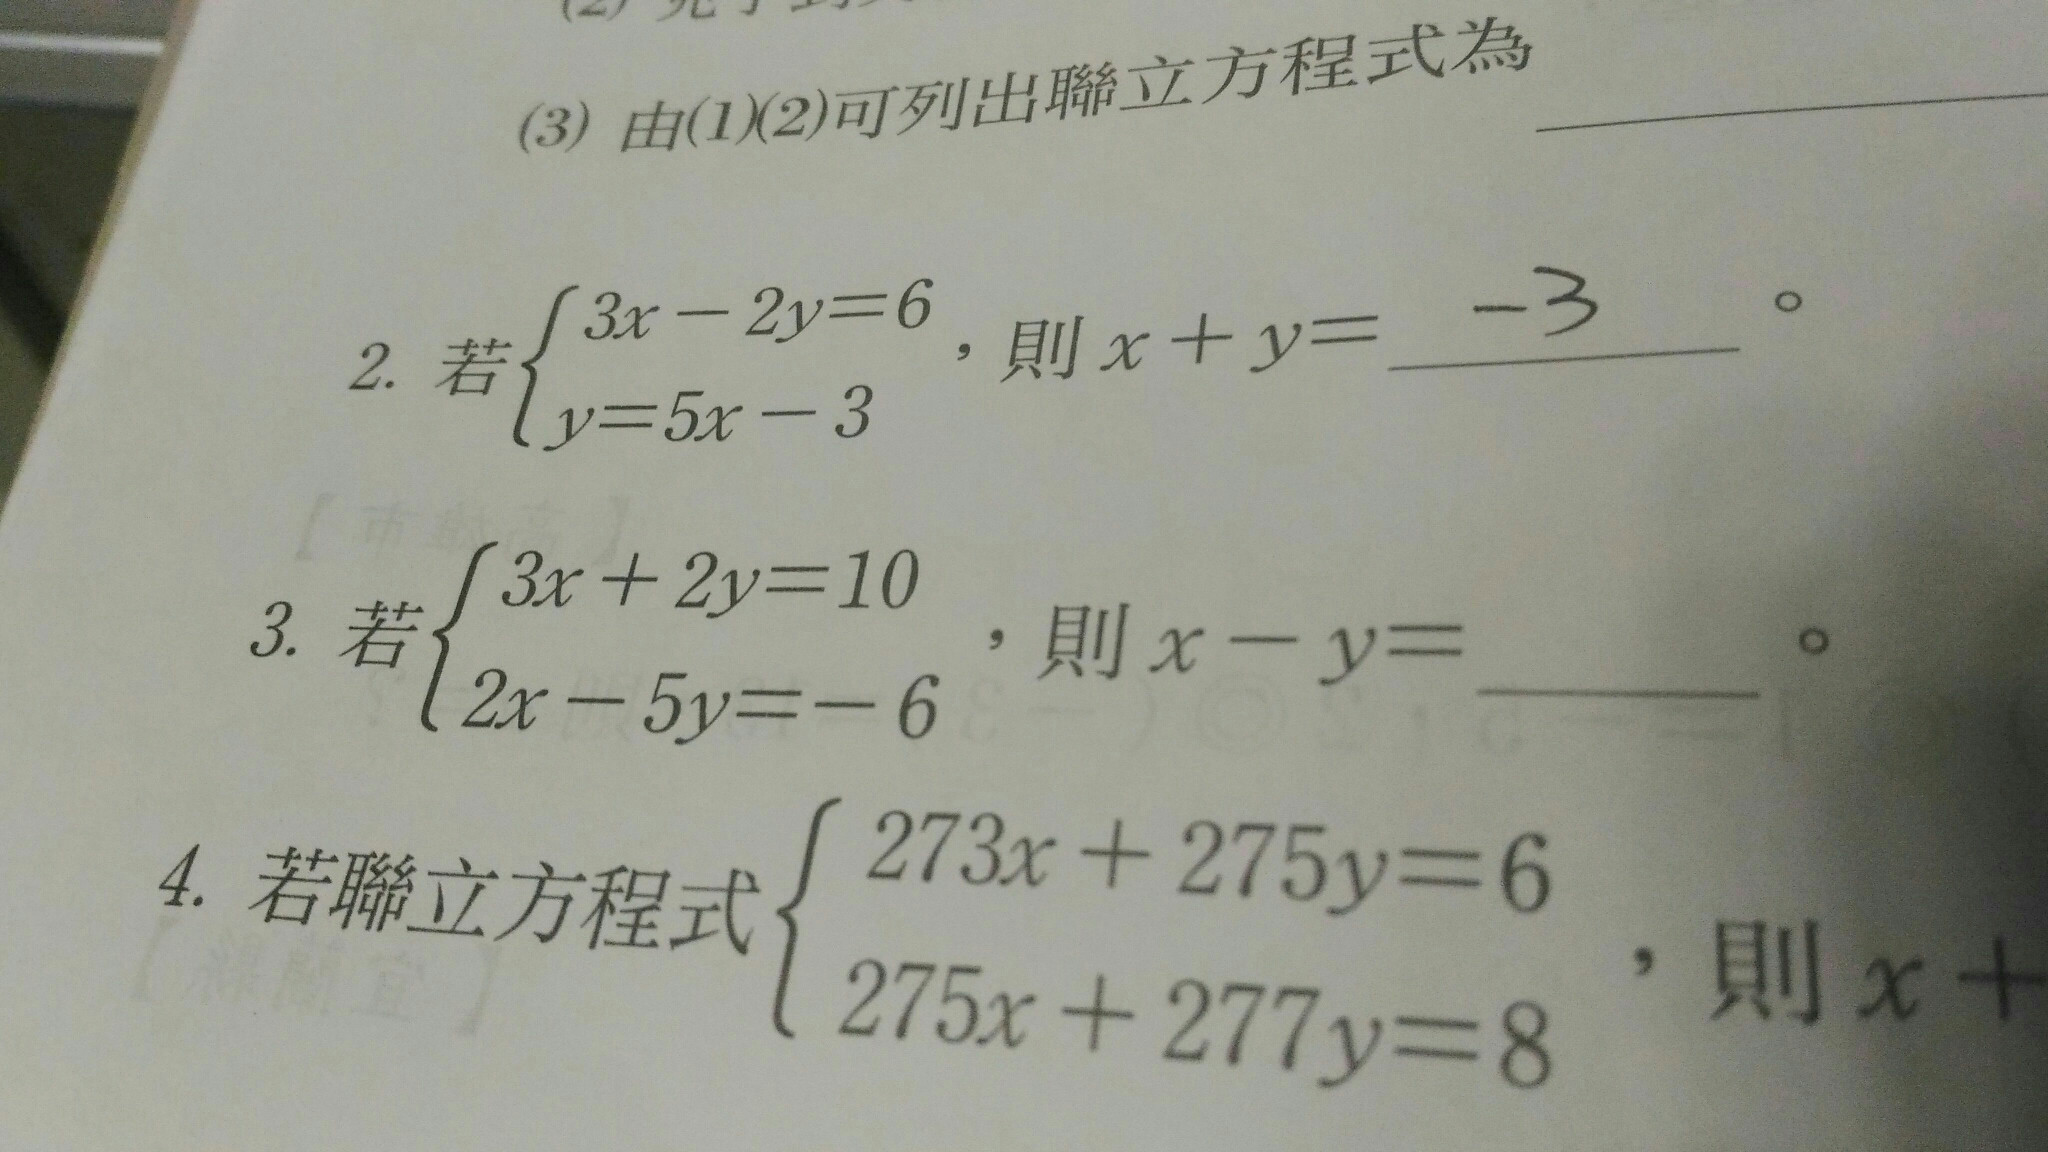 (2)
(3) 由(1)(2)可列出聯立方程式為
2. 若{3x－2y=6
y=5x－3 ，則 x＋y= -3 。
3. 若{3x＋2y=10
2x－5y=－6 ，則 x－y= 。
4. 若聯立方程式{273x＋275y=6
275x＋277y=8 ，則 x＋